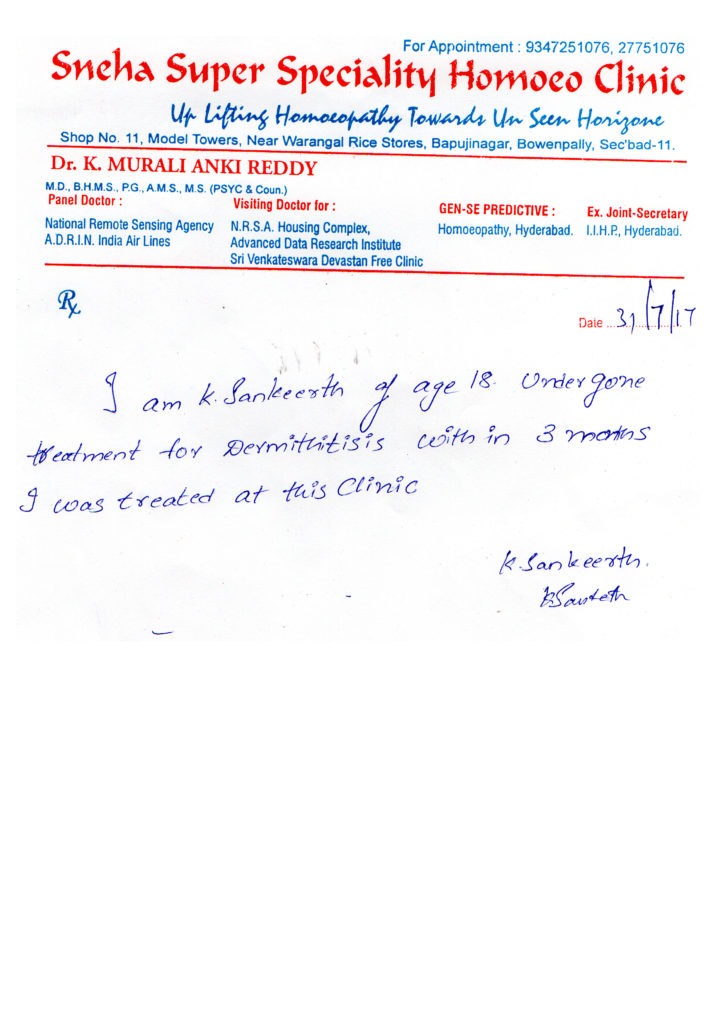 For Appointment : 9347251076, 27751076
Sneha Super Speciality Homoeo Clinic
Up Lifting Homoeopathy Towards Un Seen Horizone
Shop No. 11, Model Towers, Near Warangal Rice Stores, Bapujinagar, Bowenpally, Sec'bad-11.
Dr. K. MURALI ANKI REDDY
M.D., B.H.M.S., P.G., A.M.S., M.S. (PSYC & Coun.)
Panel Doctor :
National Remote Sensing Agency
A.D.R.I.N. India Air Lines
Visiting Doctor for :
N.R.S.A. Housing Complex,
Advanced Data Research Institute
Sri Venkateswara Devastan Free Clinic
GEN-SE PREDICTIVE :
Homoeopathy, Hyderabad.
Ex. Joint-Secretary
I.I.H.P., Hyderabad.
Rx
Date 31/7/17
I am K. Sankeerth of age 18. Undergone
treatment for Dermithitisis with in 3 months
I was treated at this Clinic
K. Sankeerth.